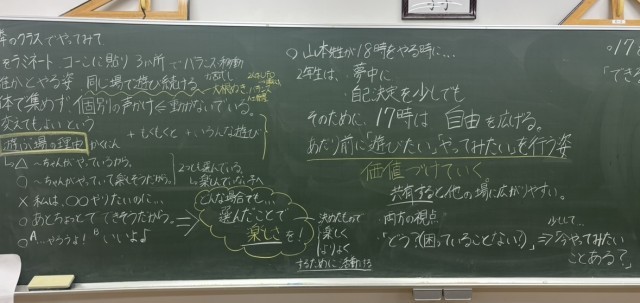 のクラスでやってみて
ラミネート コーンに貼り 3ヶ所でバランス・移動
とやる姿 同じ場で遊び続ける
体で集めず 個別の声かけ⇔動かないでいる。
交えてもよいという
+もくもくと +いろんな遊び
遊ぶ場の理由
△ 〜ちゃんがやっているから。
○ 〜ちゃんがやっていて楽しそうだから。
× 私は、○○やりたいのに…
○ あとちょっとでできそうだから。
○ A…やろうよ! B いいよ♪
2つとも選んでいる。
どんな場合でも…
選んだことで
楽しさを!
決めたもので
楽しく
よりよく
するために 活動する
○山本先生が18時をやる時に…
2年生は、夢中に
自己決定を少しでも
そのために、17時は 自由を広げる。
あたり前に「遊びたい」「やってみたい」を行う姿
価値づけていく。
共有すると他の場に広がりやすい。
両方の視点
「どう?(困っていることない?)」⇒「今やってみたい
ことある?」
少しして…
○17
「でき